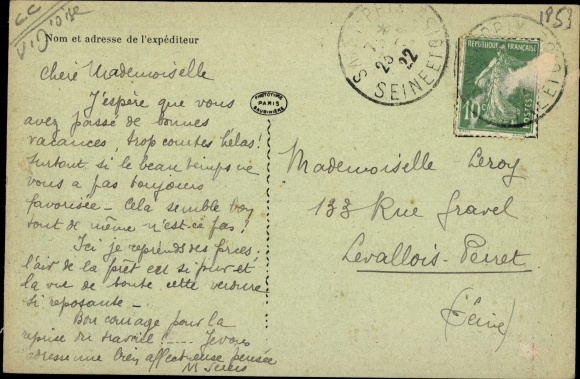 CC
V. d'Oise
1853
Nom et adresse de l'expéditeur
Chère Mademoiselle
J'espère que vous
avez passé de bonnes
vacances, trop courtes hélas!
Surtout si le beau temps ne
vous a pas toujours
favorisée - Cela semble bon
tout de même n'est-ce pas?
Ici je reprends des forces,
l'air de la forêt est si pur et
la vue de toute cette verdure
si reposante -
Bon courage pour la
reprise du travail!.... Je vous
adresse une bien affectueuse pensée
M
PHOTOTYPIE
PARIS
SEINE ET O
22
REPUBLIQUE FRANÇAISE
10c
POSTES
Mademoiselle Leroy
133 Rue Gravel
Levallois-Perret
(Seine)